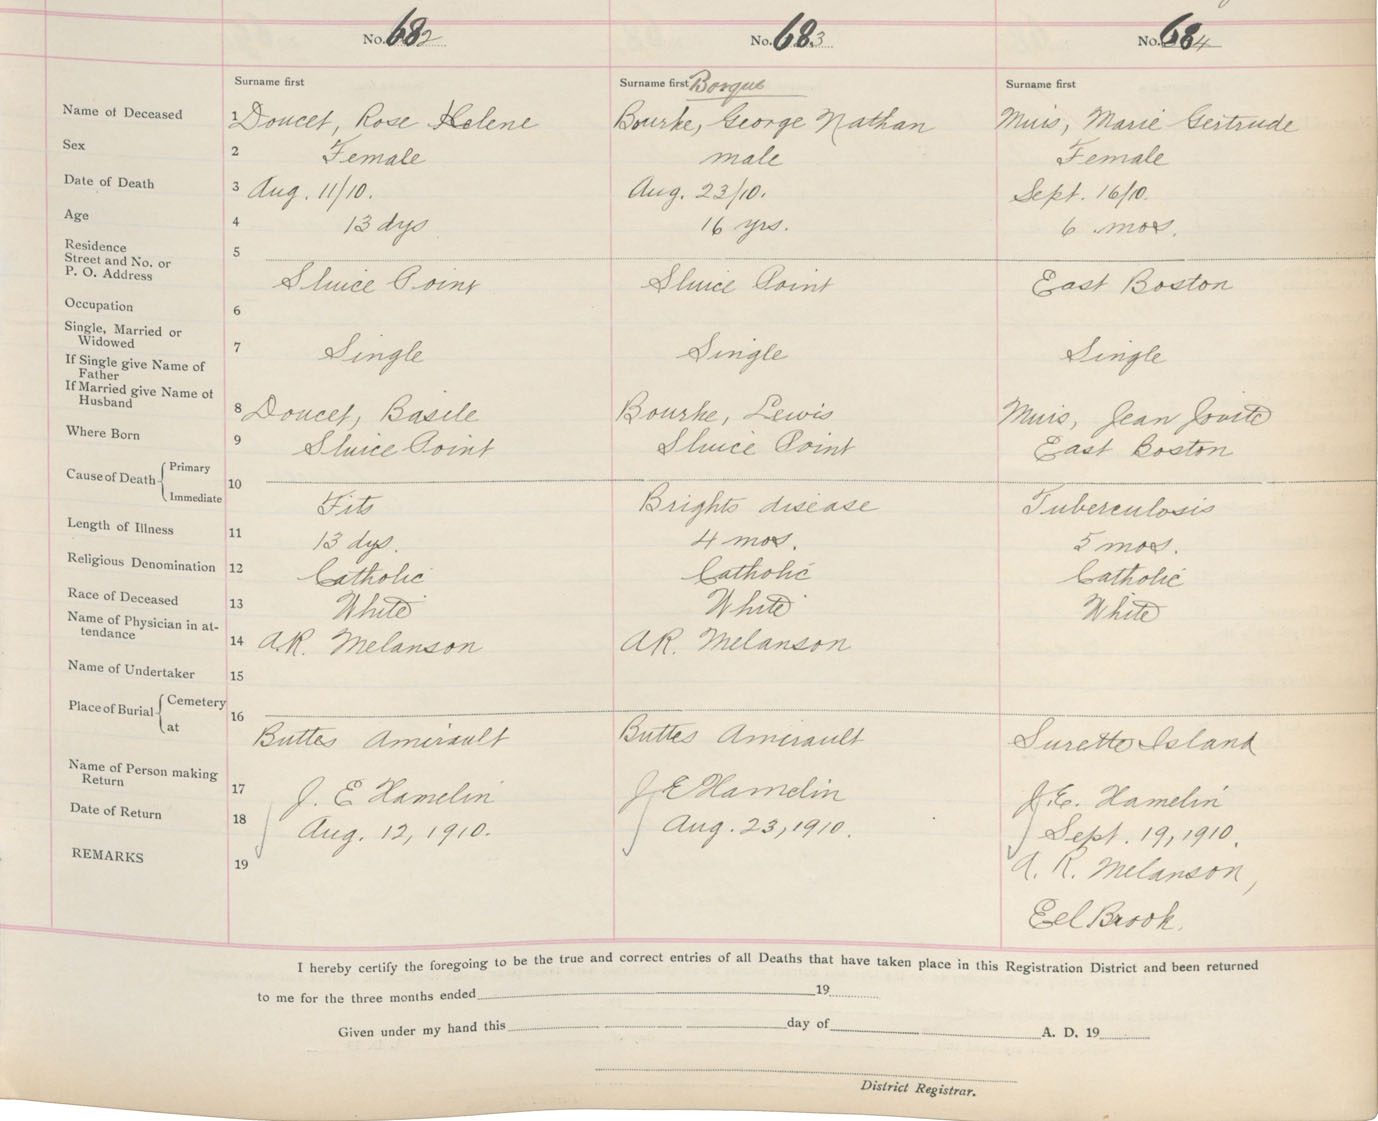 No. 682 No. 683 No. 684
Surname first Surname first Bourque Surname first
Name of Deceased 1 Doucet, Rose Helene Bourke, George Nathan Muis, Marie Gertrude
Sex 2 Female male Female
Date of Death 3 Aug. 11/10. Aug. 23/10. Sept. 16/10.
Age 4 13 dys 16 yrs. 6 mos.
Residence
Street and No. or
P. O. Address 5 Sluice Point Sluice Point East Boston
Occupation 6
Single, Married or
Widowed 7 Single Single Single
If Single give Name of
Father
If Married give Name of
Husband 8 Doucet, Basile Bourke, Lewis Muis, Jean Jovite
Where Born 9 Sluice Point Sluice Point East Boston
Cause of Death Primary
Immediate 10 Fits Brights disease Tuberculosis
Length of Illness 11 13 dys. 4 mos. 5 mos.
Religious Denomination 12 Catholic Catholic Catholic
Race of Deceased 13 White White White
Name of Physician in at-
tendance 14 A.R. Melanson A.R. Melanson
Name of Undertaker 15
Place of Burial Cemetery
at 16 Buttes Amirault Buttes Amirault Surette Island
Name of Person making
Return 17 J. E Hamelin J E Hamelin J.E. Hamelin
Date of Return 18 Aug. 12, 1910. Aug. 23, 1910. Sept. 19, 1910.
REMARKS 19 A. R. Melanson,
Eel Brook.
I hereby certify the foregoing to be the true and correct entries of all Deaths that have taken place in this Registration District and been returned
to me for the three months ended 19
Given under my hand this day of A. D. 19
District Registrar.